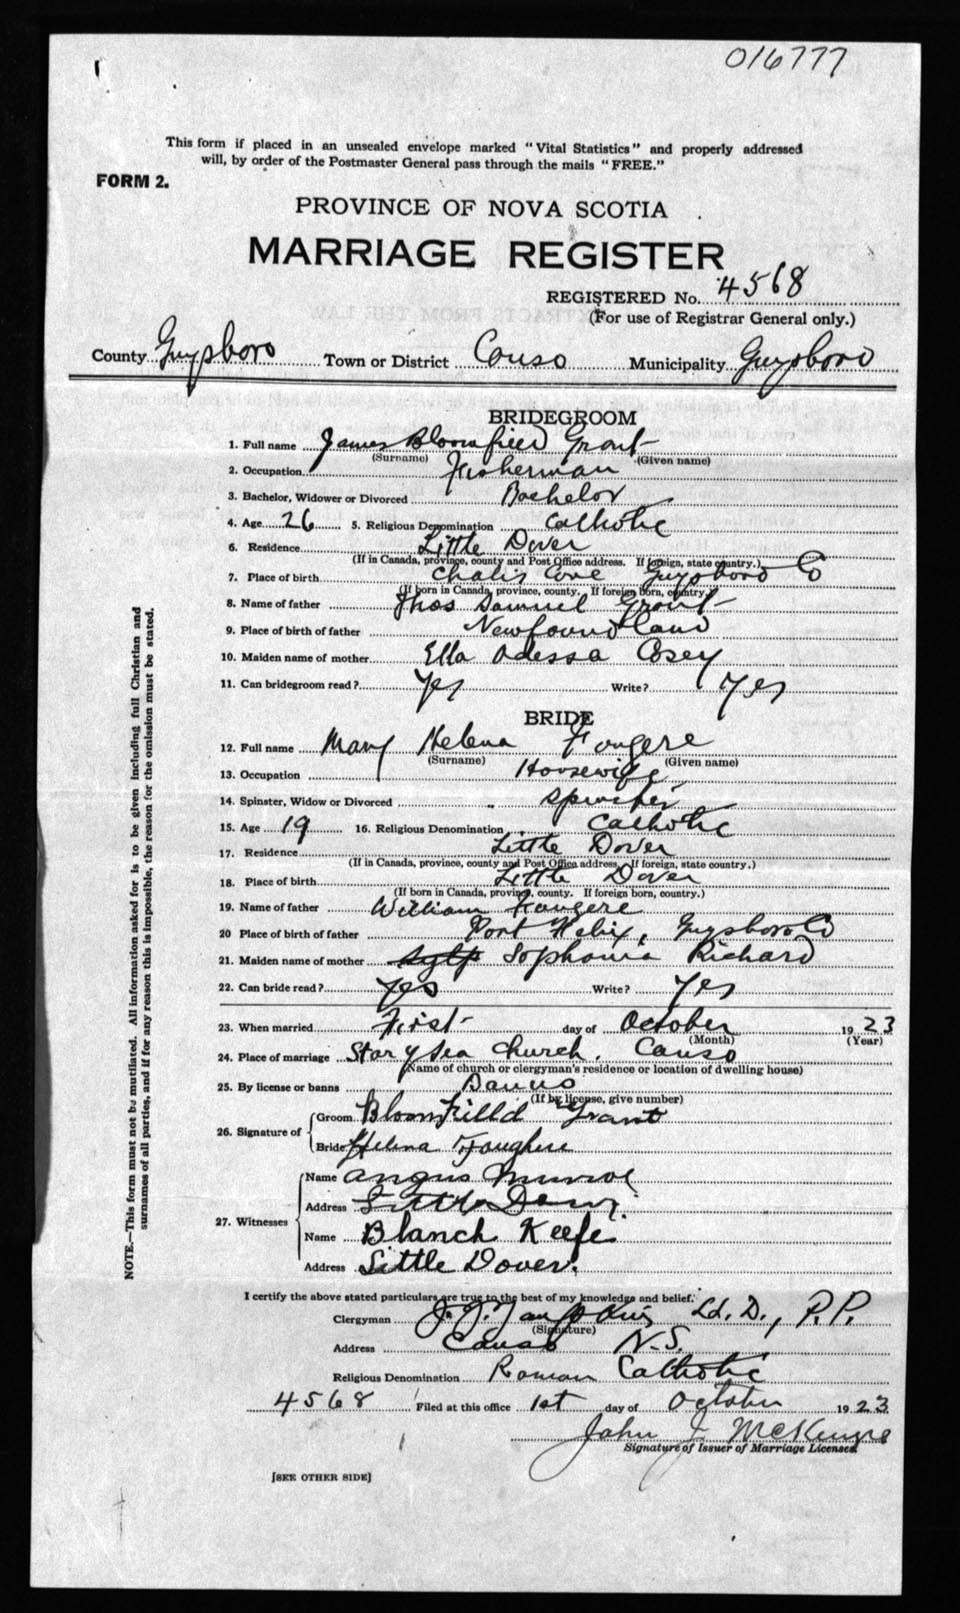 016777
This form if placed in an unsealed envelope marked "Vital Statistics" and properly addressed
will, by order of the Postmaster General pass through the mails "FREE."
FORM 2.
PROVINCE OF NOVA SCOTIA
MARRIAGE REGISTER
REGISTERED No. 4568
(For use of Registrar General only.)
County Guysboro Town or District Canso Municipality Guysboro
BRIDEGROOM
1. Full name James Bloomfield Grant
(Surname) (Given name)
2. Occupation Fisherman
3. Bachelor, Widower or Divorced Bachelor
4. Age 26 5. Religious Denomination Catholic
6. Residence Little Dover
(If in Canada, province, county and Post Office address. If foreign, state country.)
7. Place of birth Cove Guysboro Co
(If born in Canada, province, county. If foreign born, country.)
8. Name of father Thos Samuel Grant
9. Place of birth of father Newfoundland
10. Maiden name of mother Ella Odessa Cosey
11. Can bridegroom read? Yes Write? Yes
BRIDE
12. Full name Mary Helena Fougere
(Surname) (Given name)
13. Occupation Housewife
14. Spinster, Widow or Divorced Spinster
15. Age 19 16. Religious Denomination Catholic
17. Residence Little Dover
(If in Canada, province, county and Post Office address. If foreign, state country.)
18. Place of birth Little Dover
(If born in Canada, province, county. If foreign born, country.)
19. Name of father William Fougere
20 Place of birth of father Port Felix, Guysboro Co
21. Maiden name of mother Richard
22. Can bride read? Yes Write? Yes
23. When married First day of October 1923
(Month) (Year)
24. Place of marriage Star of Sea Church, Canso
(Name of church or clergyman's residence or location of dwelling house)
25. By license or banns Banns
(If by license, give number)
26. Signature of
Groom Bloomfield Grant
Bride Helena Fougere
27. Witnesses
Name Angus Munroe
Address Little Dover.
Name Blanch Keefe
Address Little Dover.
I certify the above stated particulars are true to the best of my knowledge and belief.
Clergyman J. J. Tompkins Ld. D., P.P.
(Signature)
Address Canso N.S.
Religious Denomination Roman Catholic
4568 Filed at this office 1st day of October 1923
John J McKenzie
Signature of Issuer of Marriage Licenses.
[SEE OTHER SIDE]
NOTE.—This form must not be mutilated. All information asked for is to be given including full Christian and
surnames of all parties, and if for any reason this is impossible, the reason for the omission must be stated.